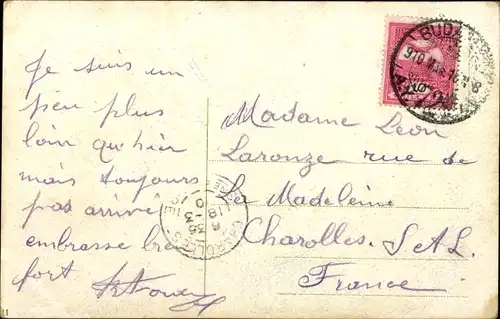 Je suis un
peu plus
loin qu'hier
mais toujours
pas arrivé
embrasse bien
fort
Madame Léon
Laronze rue de
La Madeleine
Charolles. S.&L.
France
BUDA
910 MAR 16
CHAROLLES